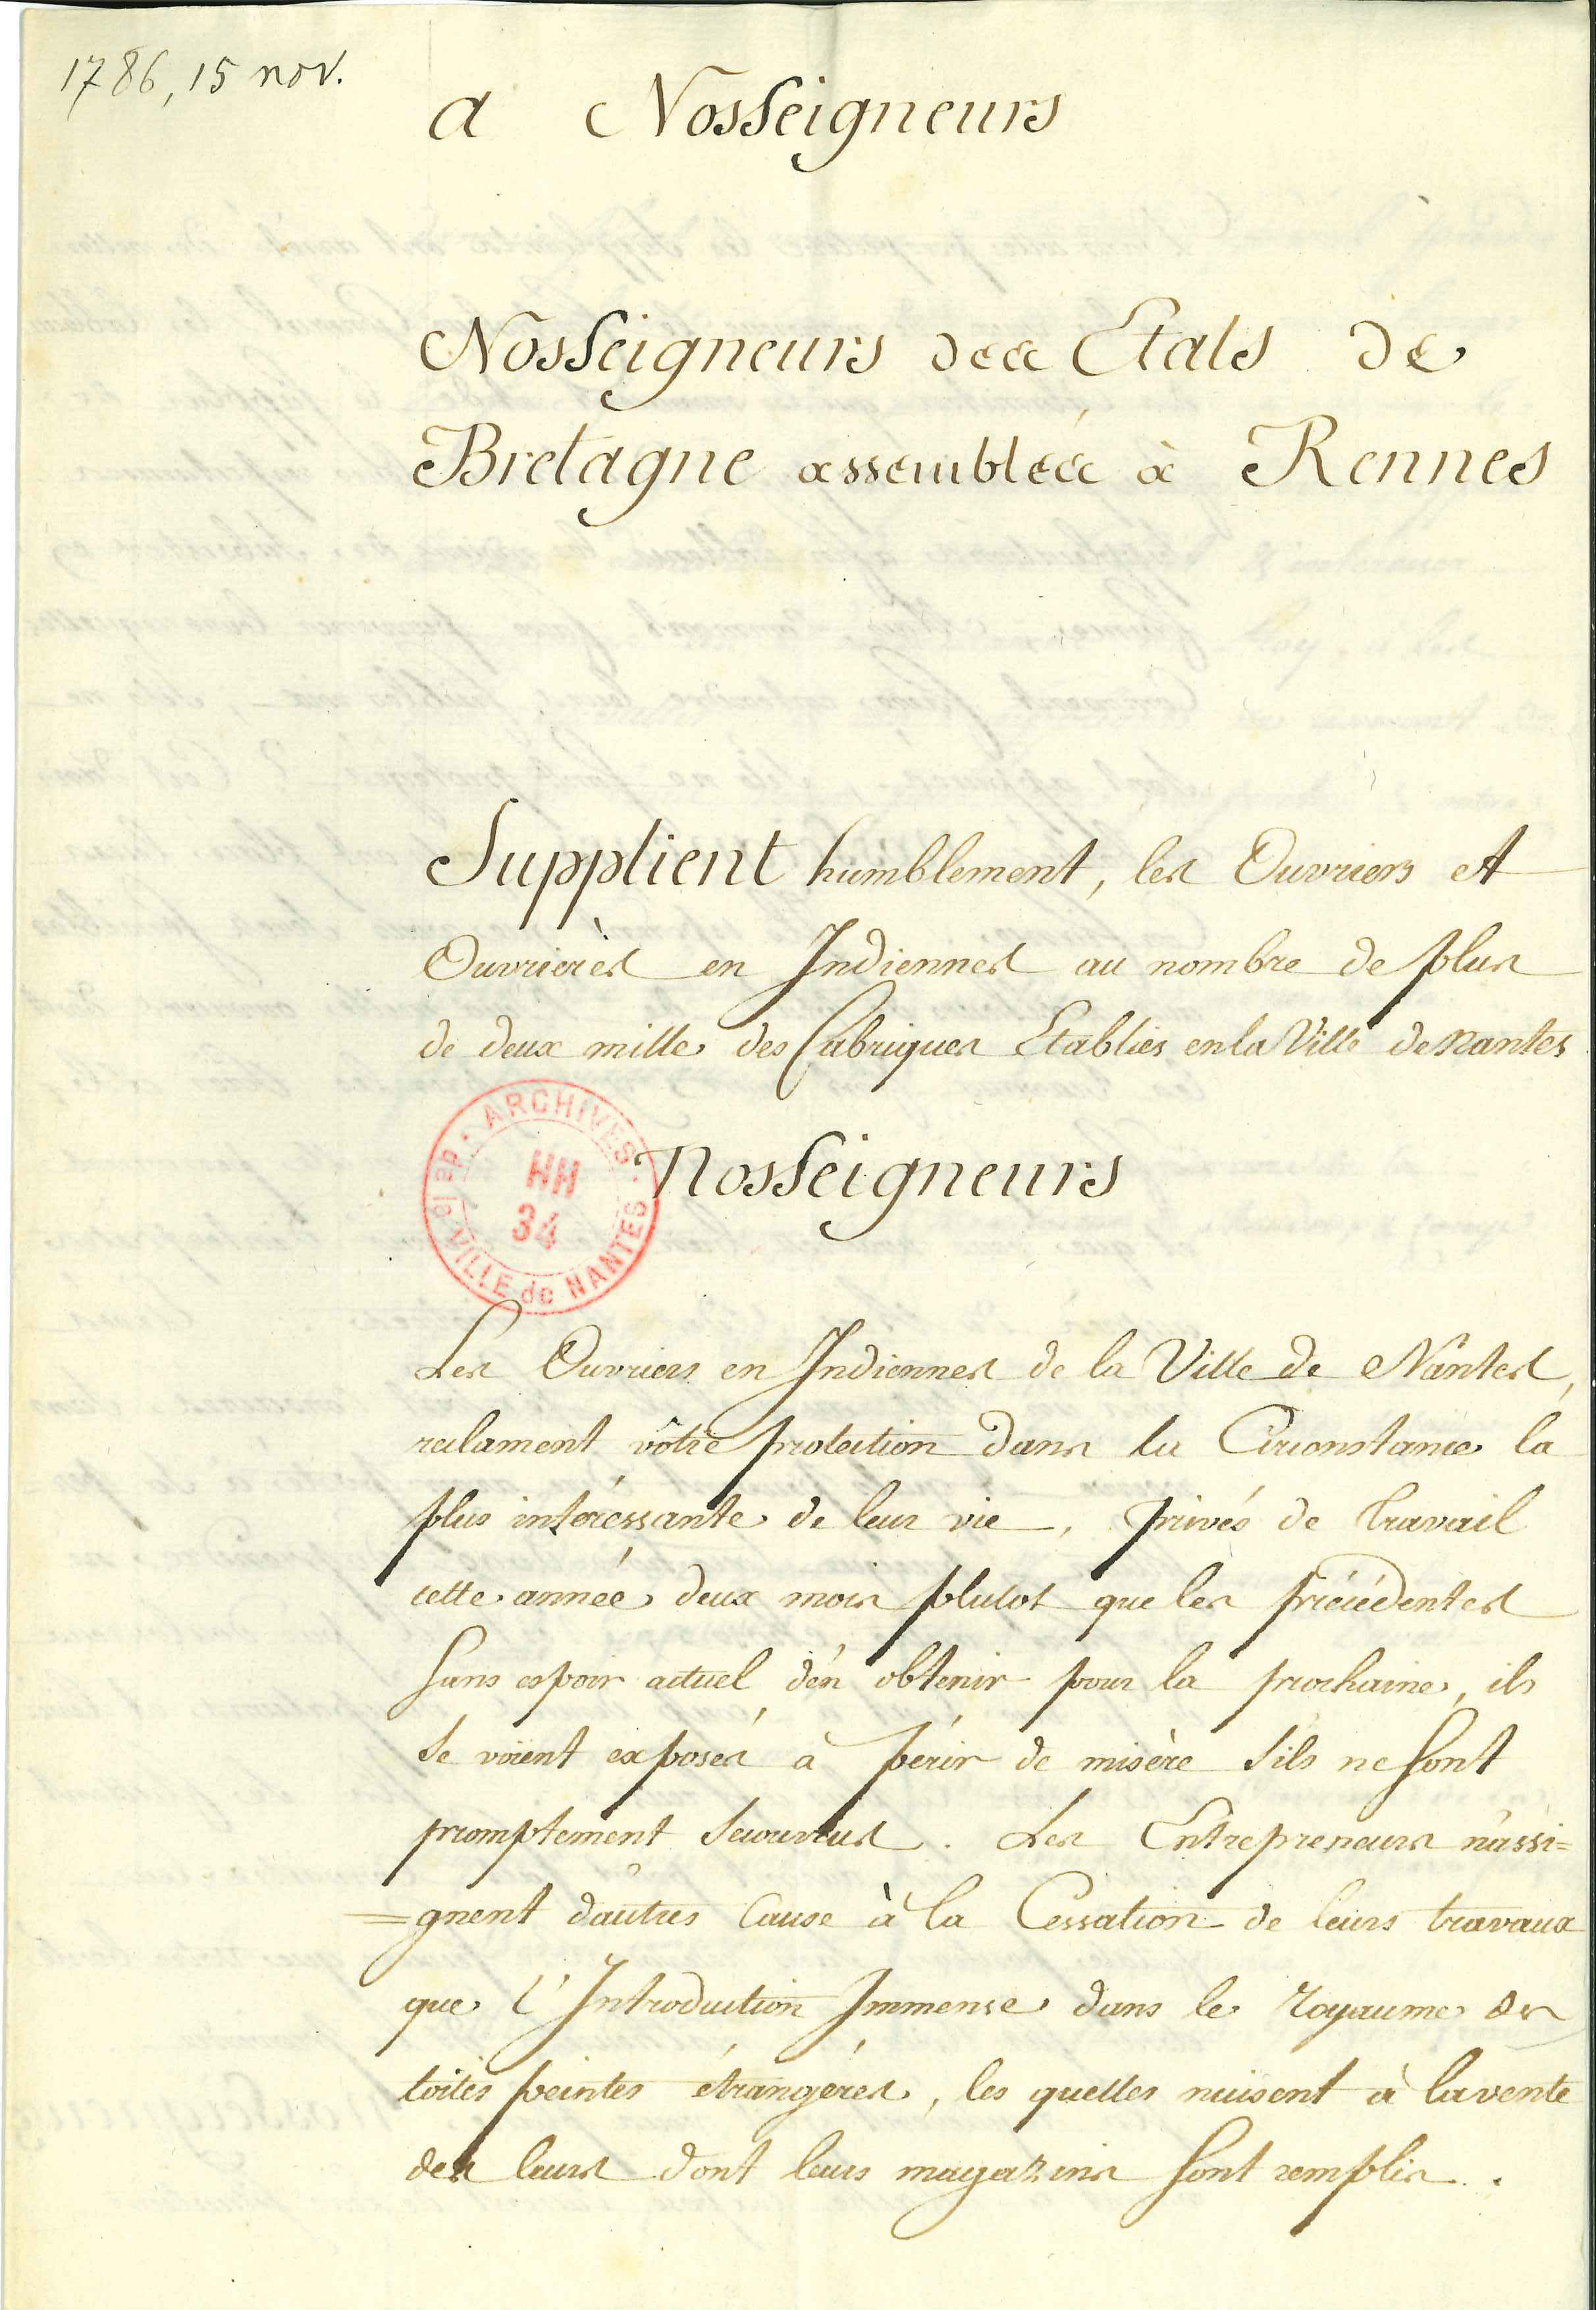 1786, 15 nov.
a Nosseigneurs
Nosseigneurs des Etats de
Bretagne assemblés à Rennes
Supplient humblement, les Ouvriers et
Ouvrierès en Indiennes au nombre de plus
de deux mille des fabriques Etablies en la Ville de Nantes
ARCHIVES de la VILLE de NANTES
HH
34
Nosseigneurs
Les Ouvriers en Indiennes de la Ville de Nantes,
reclament vôtre protection dans la Circonstance la
plus intéressante de leur vie, privés de travail
cette année deux mois plutot que les précédentes
sans espoir actuel d'en obtenir pour la prochaine, ils
se voient exposés à périr de misère s'ils ne sont
promptement secourus. Les Entrepreneurs n'assi=
=gnent d'autres Cause à la Cessation de leurs travaux
que l'Introduction Immense dans le royaume des
toiles peintes étrangéres, les quelles nuisent à la vente
des leurs dont leurs magazins sont remplis.